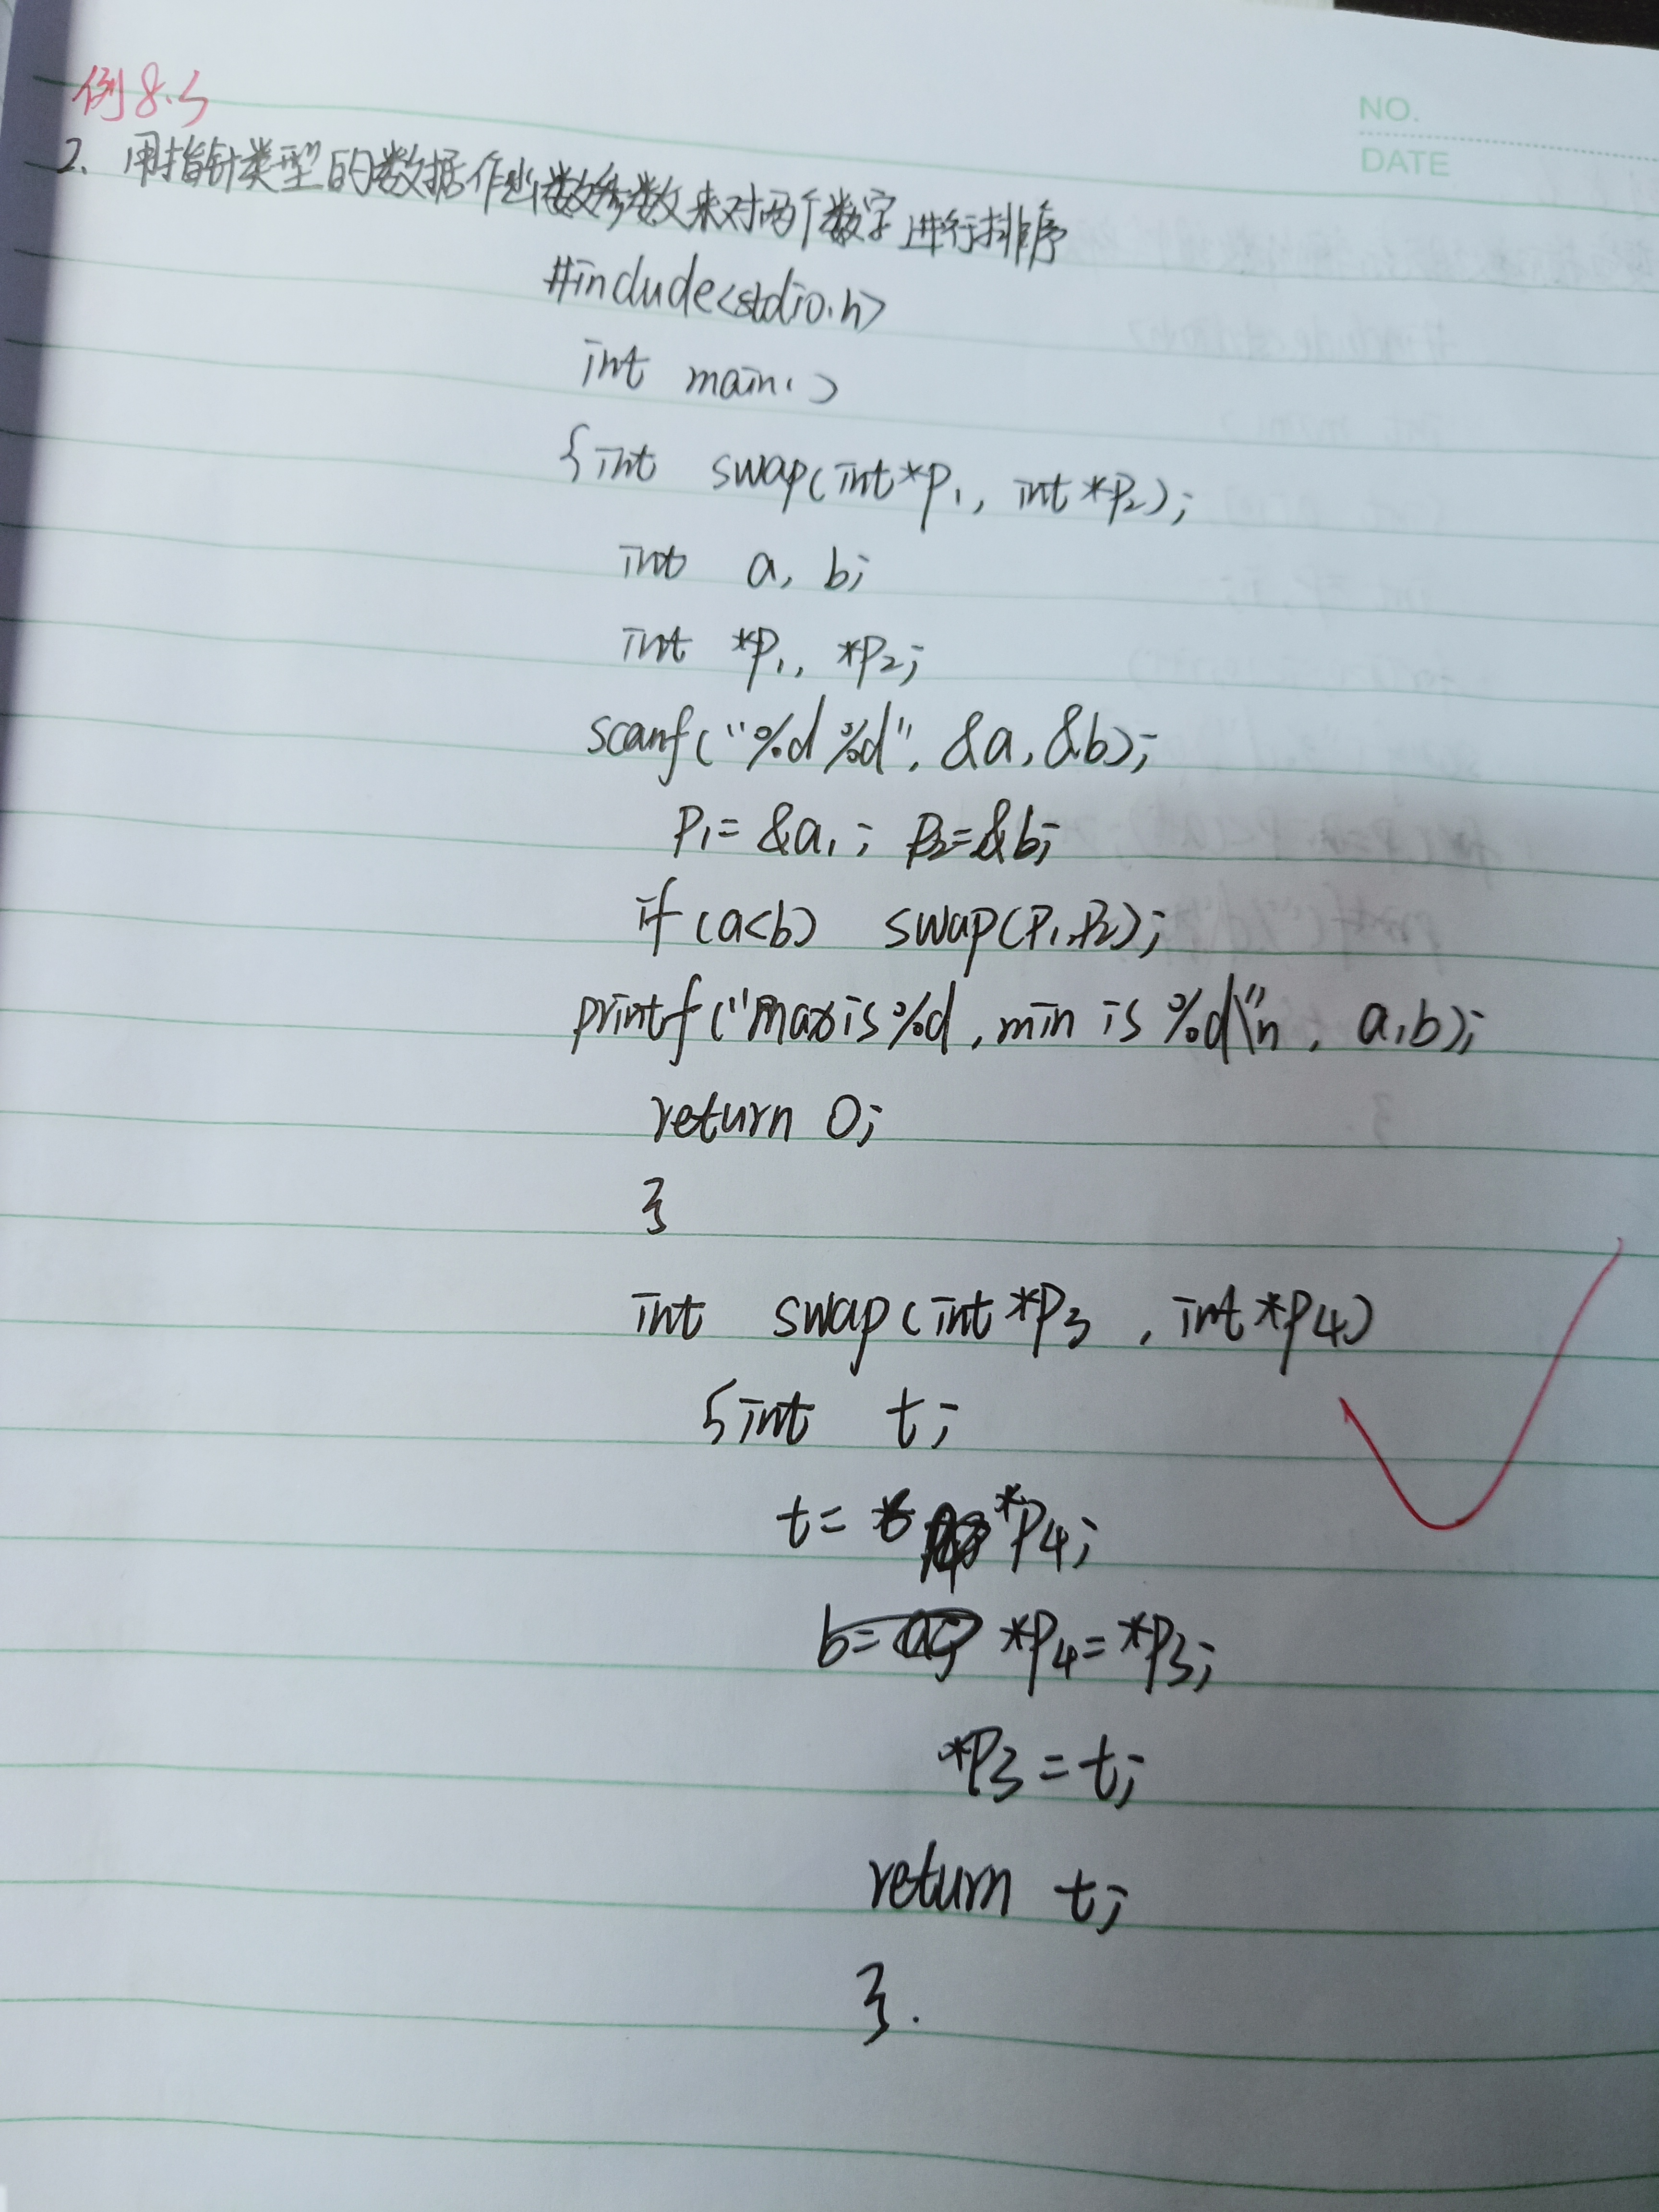 例8.3
NO.
DATE
2、用指针类型的数据作函数参数来对两个数字进行排序
#include<stdio.h>
int main()
{int swap(int*p1, int*p2);
int a, b;
int *p1, *p2;
scanf("%d %d", &a, &b);
p1=&a,; p2=&b;
if (a<b) swap(p1,p2);
printf("max is %d, min is %d\"n, a,b);
return 0;
}
int swap(int*p3, int*p4)
{int t;
t= *p4;
b= *p4=*p3;
*p3=t;
return t;
}.